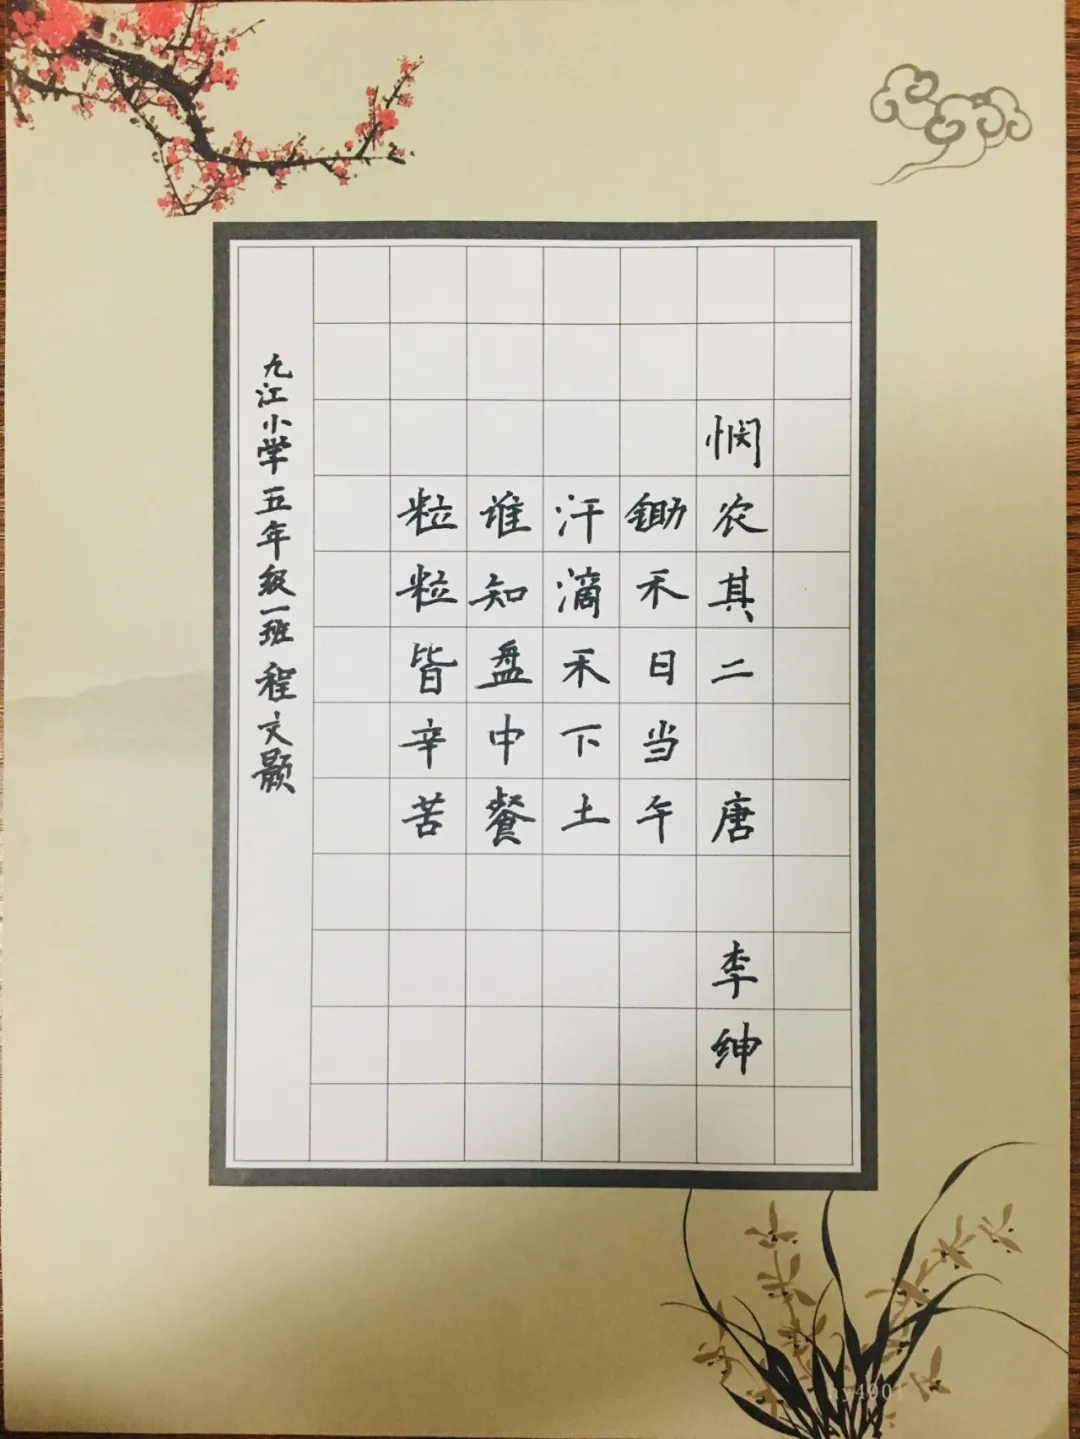 悯农其二 唐 李绅
锄禾日当午
汗滴禾下土
谁知盘中餐
粒粒皆辛苦
九江小学五年级一班程文颢
hy4001